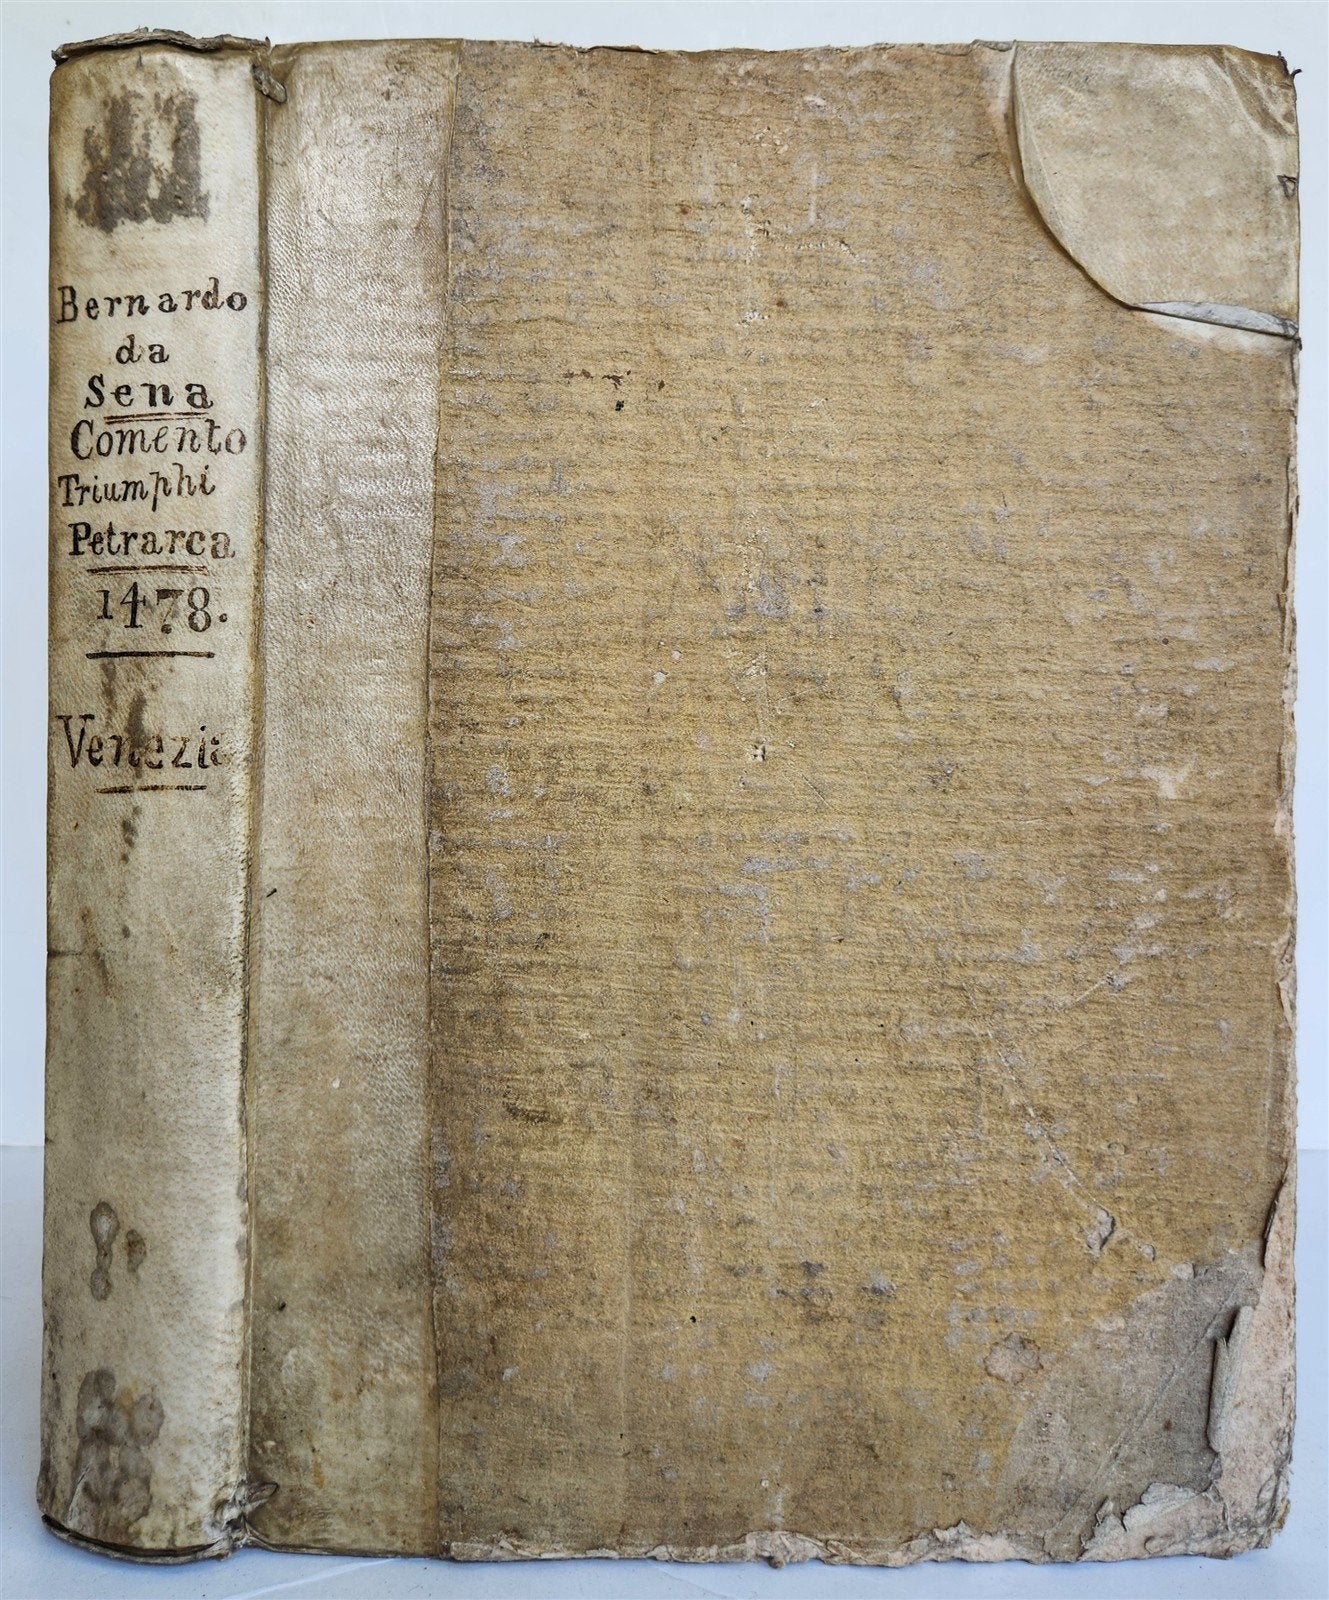 Bernardo
da
Sena
Comento
Triumphi
Petrarca
1478.
Venezia